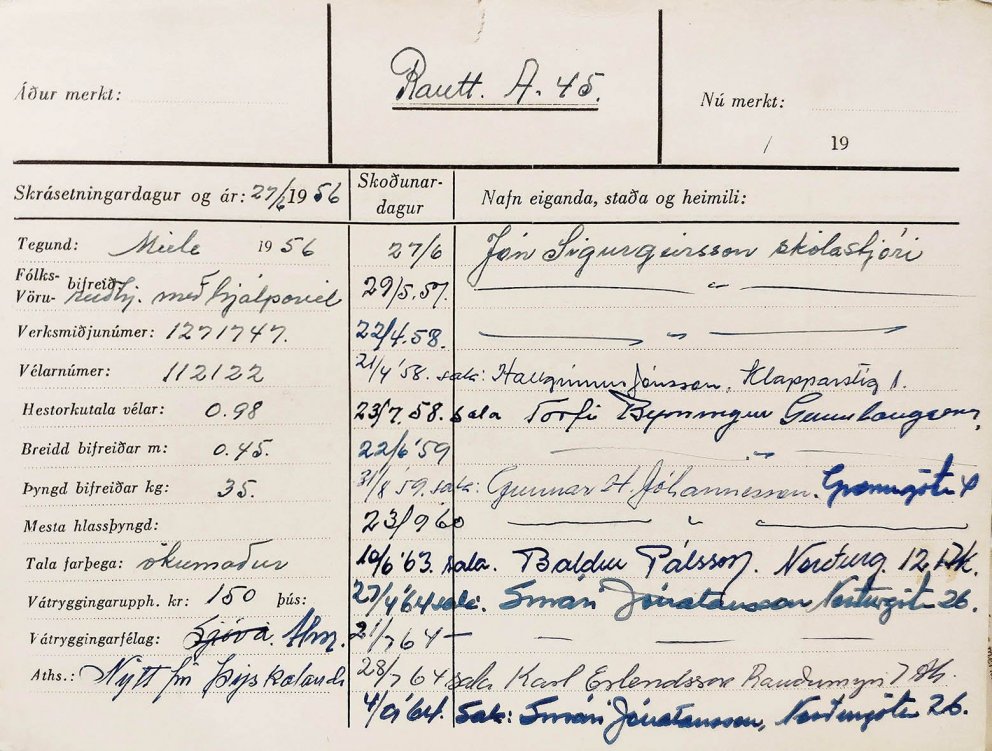 Rautt. A. 45.
Áður merkt:
Nú merkt:
/ 19
Skrásetningardagur og ár: 27/6 1956
Skoðunar-
dagur
Nafn eiganda, staða og heimili:
Tegund: Miele 1956
27/6 Jón Sigurgeirsson skólastjóri
Fólks-
Vöru- bifreið: reiðhj. með hjálparvél
29/5.57. — " —
Verksmiðjunúmer: 1271747.
22/4.58. — " —
Vélarnúmer: 112122
21/4 '58. sala: Hallgrímur Jónsson, Klapparstíg 1.
Hestorkutala vélar: 0.98
23/7.58. sala Torfi Gunnlaugsson,
Breidd bifreiðar m: 0.45.
22/6 '59 — " —
Þyngd bifreiðar kg: 35.
31/8 59. sala: Gunnar H. Jóhannesson. Grænugötu 4
Mesta hlassþyngd:
23/9 '60 — " —
Tala farþega: ökumaður
10/6 '63. sala. Baldur Pálsson. Norðurg. 12 Ak.
Vátryggingarupph. kr: 150 þús:
27/4 '64 sala. Smári Jónatansson Norðurgötu 26.
Vátryggingarfélag: Sjóvá. Alm.
21/7 64 — — — —
Aths.: Nýtt frá Þýskalandi
28/7 64 sala Karl Erlendsson 7 Ak.
4/9 '64. Sala: Smári Jónatansson, Norðurgötu 26.